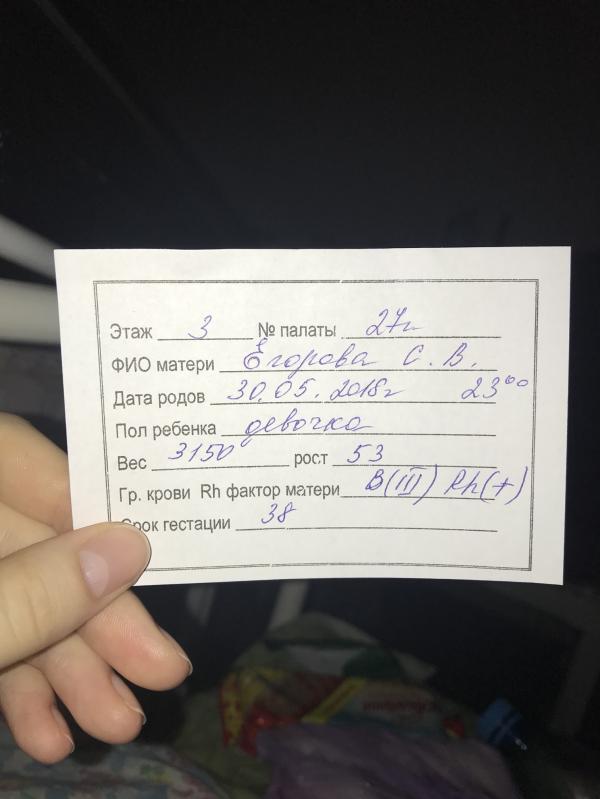 Этаж 3 № палаты 27
ФИО матери Егорова С. В.
Дата родов 30.05.2018г 23⁰⁰
Пол ребенка девочка
Вес 3150 рост 53
Гр. крови Rh фактор матери B(III) Rh(+)
Срок гестации 38